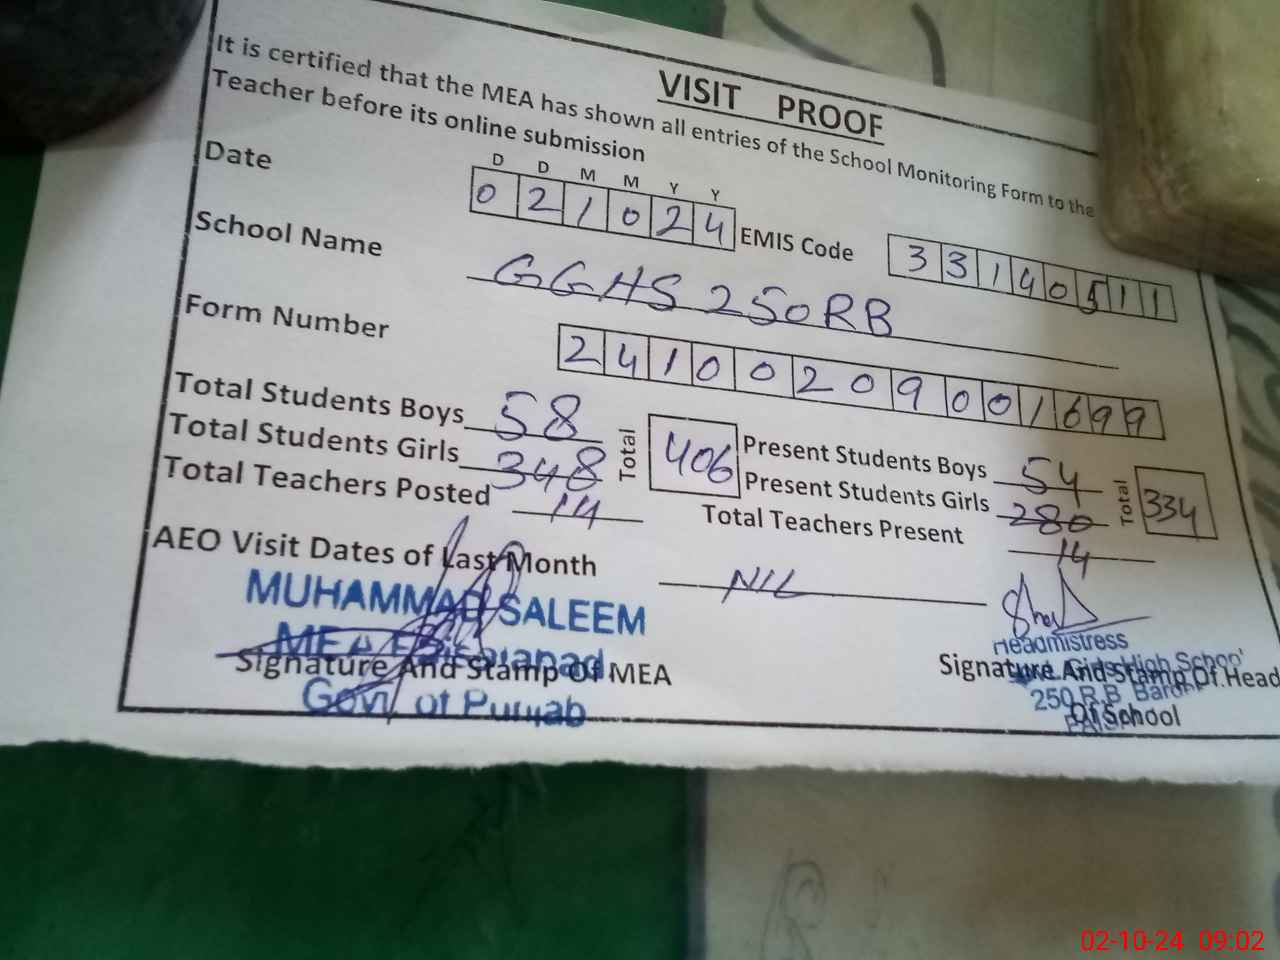 VISIT PROOF
It is certified that the MEA has shown all entries of the School Monitoring Form to the
Teacher before its online submission
D D M M Y Y
Date 0 2 1 0 2 4 EMIS Code 3 3 1 4 0 5 1 1
School Name GGHS 250RB
Form Number 2 4 1 0 0 2 0 9 0 0 1 6 9 9
Total Students Boys 58 Total 406 Present Students Boys 54 Total 334
Total Students Girls 348 Present Students Girls 280
Total Teachers Posted 14 Total Teachers Present 14
AEO Visit Dates of Last Month NIL
MUHAMMAD SALEEM
MEA
Signature And Stamp Of MEA
Govt of Punjab
Headmistress
Girls High School
Signature And Stamp Of Head
250 R.B
Of School
02-10-24 09:02